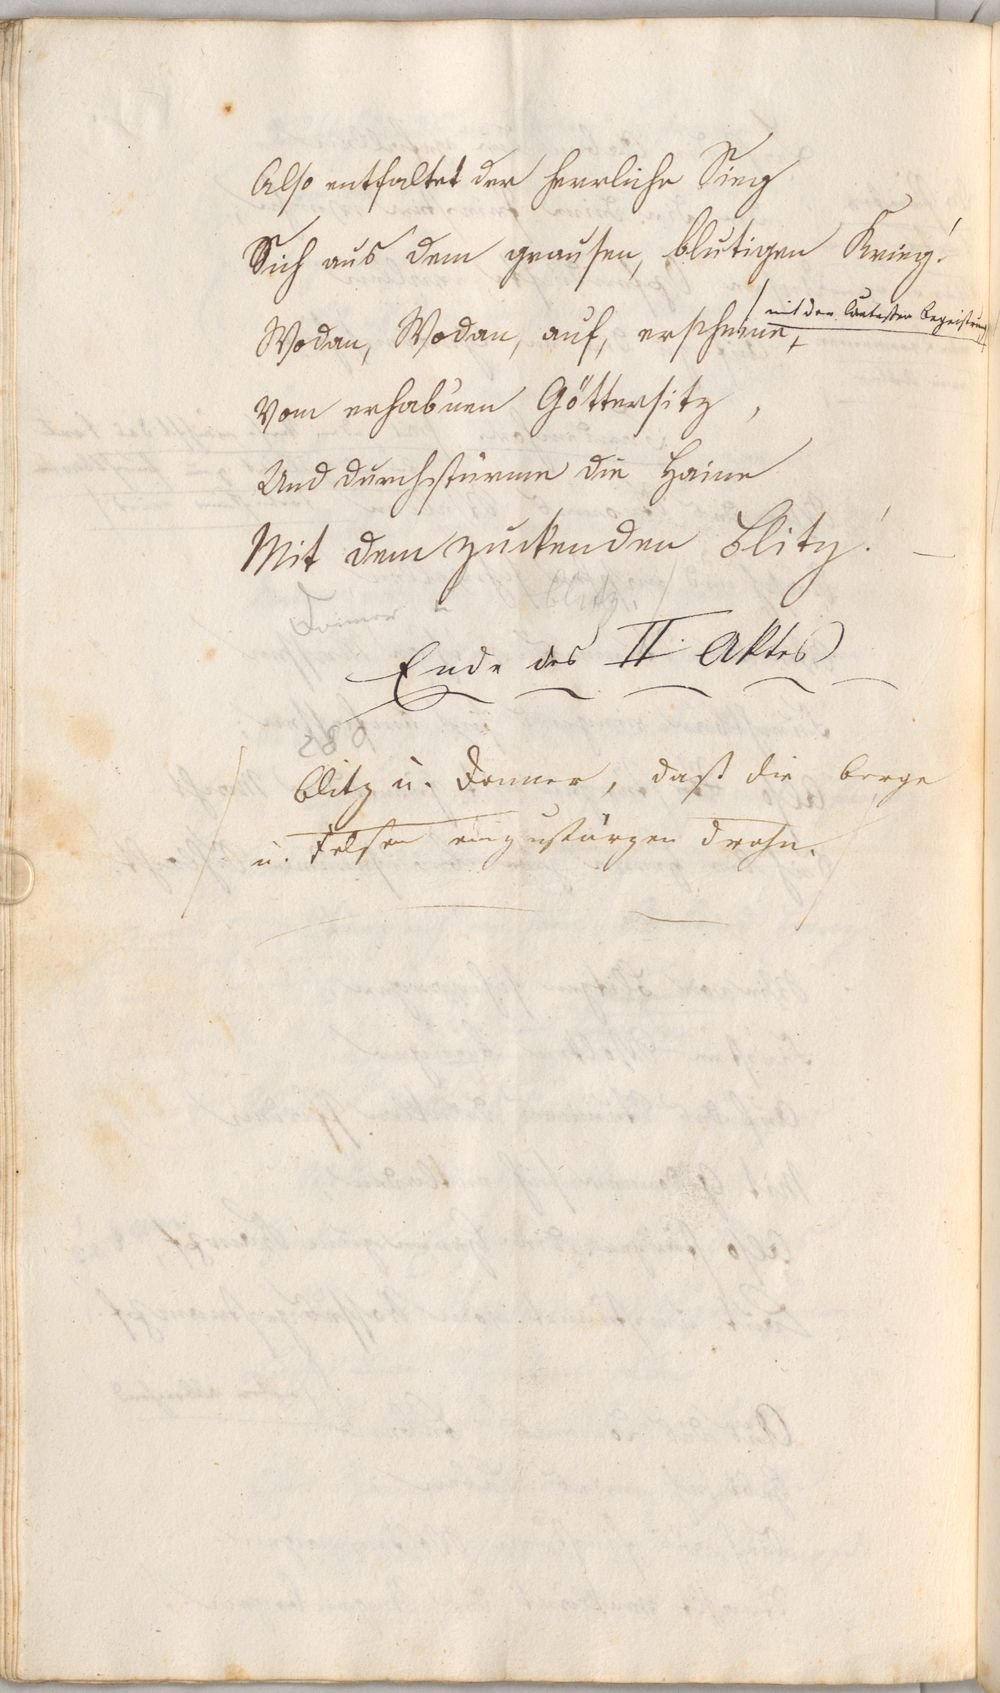 Also entfaltet der herrliche Sieg
Sich aus dem grausen, blutigen Krieg!
mit der lautesten Begeistrung
Wodan, Wodan, auf, erscheine,
Vom erhab'nen Göttersitz,
Und durchstürme die Haine
Mit dem zuckenden Blitz! —
Donner u Blitz.
Ende des II. Aktes
Blitz u. Donner, daß die Berge
u. Felsen einzustürzen drohn.